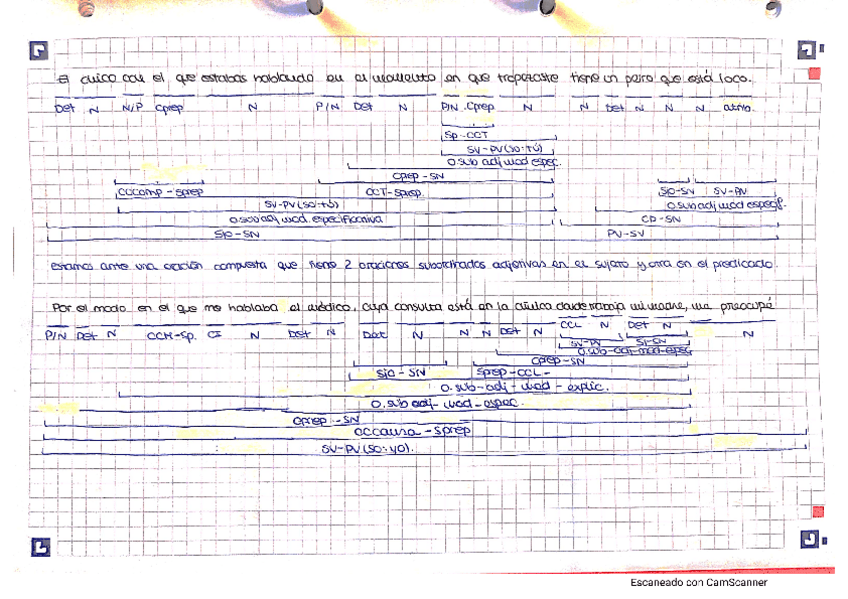 El chico con el que estabas hablando en el momento en que tropezaste tiene un perro que está loco.
Det N N/P Cprep N P/N Det N P/N Cprep N N Det N N N atrib.
Sp-CCT
SV-PV(SO:TÚ)
O.sub adj mod espec.
Cprep-SN
CCcomp-Sprep CCT-Sprep SJO-SN SV-PV
SV-PV(SO:TÚ) O.sub adj mod especif.
O.sub adj mod. especificativa CD-SN
SJO-SN PV-SV
Estamos ante una oración compuesta que tiene 2 oraciones subordinadas adjetivas en el sujeto y otra en el predicado.
Por el modo en el que me hablaba el médico, cuya consulta está en la clínica donde trabaja mi madre, me preocupé
P/N Det N CCM-Sp. CI N Det N Det N N N Det N CCL N Det N N
SV-PV SJ-SN
O.sub-adj-mod-espec
Cprep-SN
SJO-SN Sprep-CCL-
O.sub-adj-mod-explic.
O.sub adj-mod-espec.
Cprep-SN
CCcausa-Sprep
SV-PV(SO:yo).
Escaneado con CamScanner